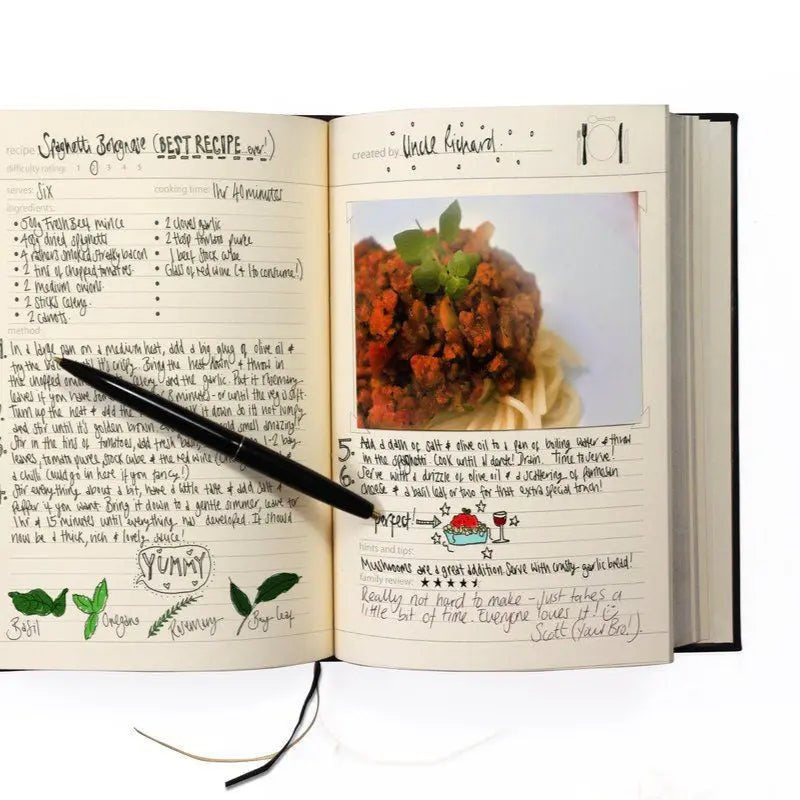 recipe Spaghetti Bolognase (BEST RECIPE...ever!)
difficulty rating: 1 2 3 4 5
serves: Six cooking time: 1hr 40 minutes
ingredients:
• 500g Fresh Beef mince
• 400g dried spaghetti
• 4 rashers smoked streaky bacon
• 2 tins of chopped tomatoes.
• 2 medium onions.
• 2 sticks celery.
• 2 carrots.
• 2 cloves garlic
• 2 tbsp tomato puree
• 1 beef stock cube
• Glass of red wine (+ 1 to consume!)
method:
In a large pan on a medium heat, add a big glug of olive oil &
fry the until it's crispy. Bring the heat down & throw in
the chopped celery and the garlic. Put it rosemary
leaves if you have 8 minutes - or until the veg is soft.
Turn up the heat & add the it down so it's not lumpy
and stir until it's golden brown. smell amazing!
Stir in the tins of tomatoes, add fresh 1-2 bay
leaves, tomato puree, stock cube & the red wine
a chilli could go in here if you fancy!)
Stir everything about a bit, have a little taste & add salt &
pepper if you want. Bring it down to a gentle simmer, leave for
1hr & 15 minutes until everything has developed. It should
now be a thick, rich & lovely sauce!
YUMMY
Basil Oregano Rosemary Bay leaf
created by Uncle Richard.
5. Add a dash of salt & olive oil to a pan of boiling water & throw
in the spaghetti. Cook until al dente! Drain. Time to serve!
6. Serve with a drizzle of olive oil & a scattering of parmesan
cheese & a basil leaf or two for that extra special touch!
perfect!
hints and tips:
Mushrooms are a great addition. Serve with crusty garlic bread!
family review: ★★★★★
Really not hard to make - just takes a
little bit of time. Everyone loves it!
Scott (Your Bro!).